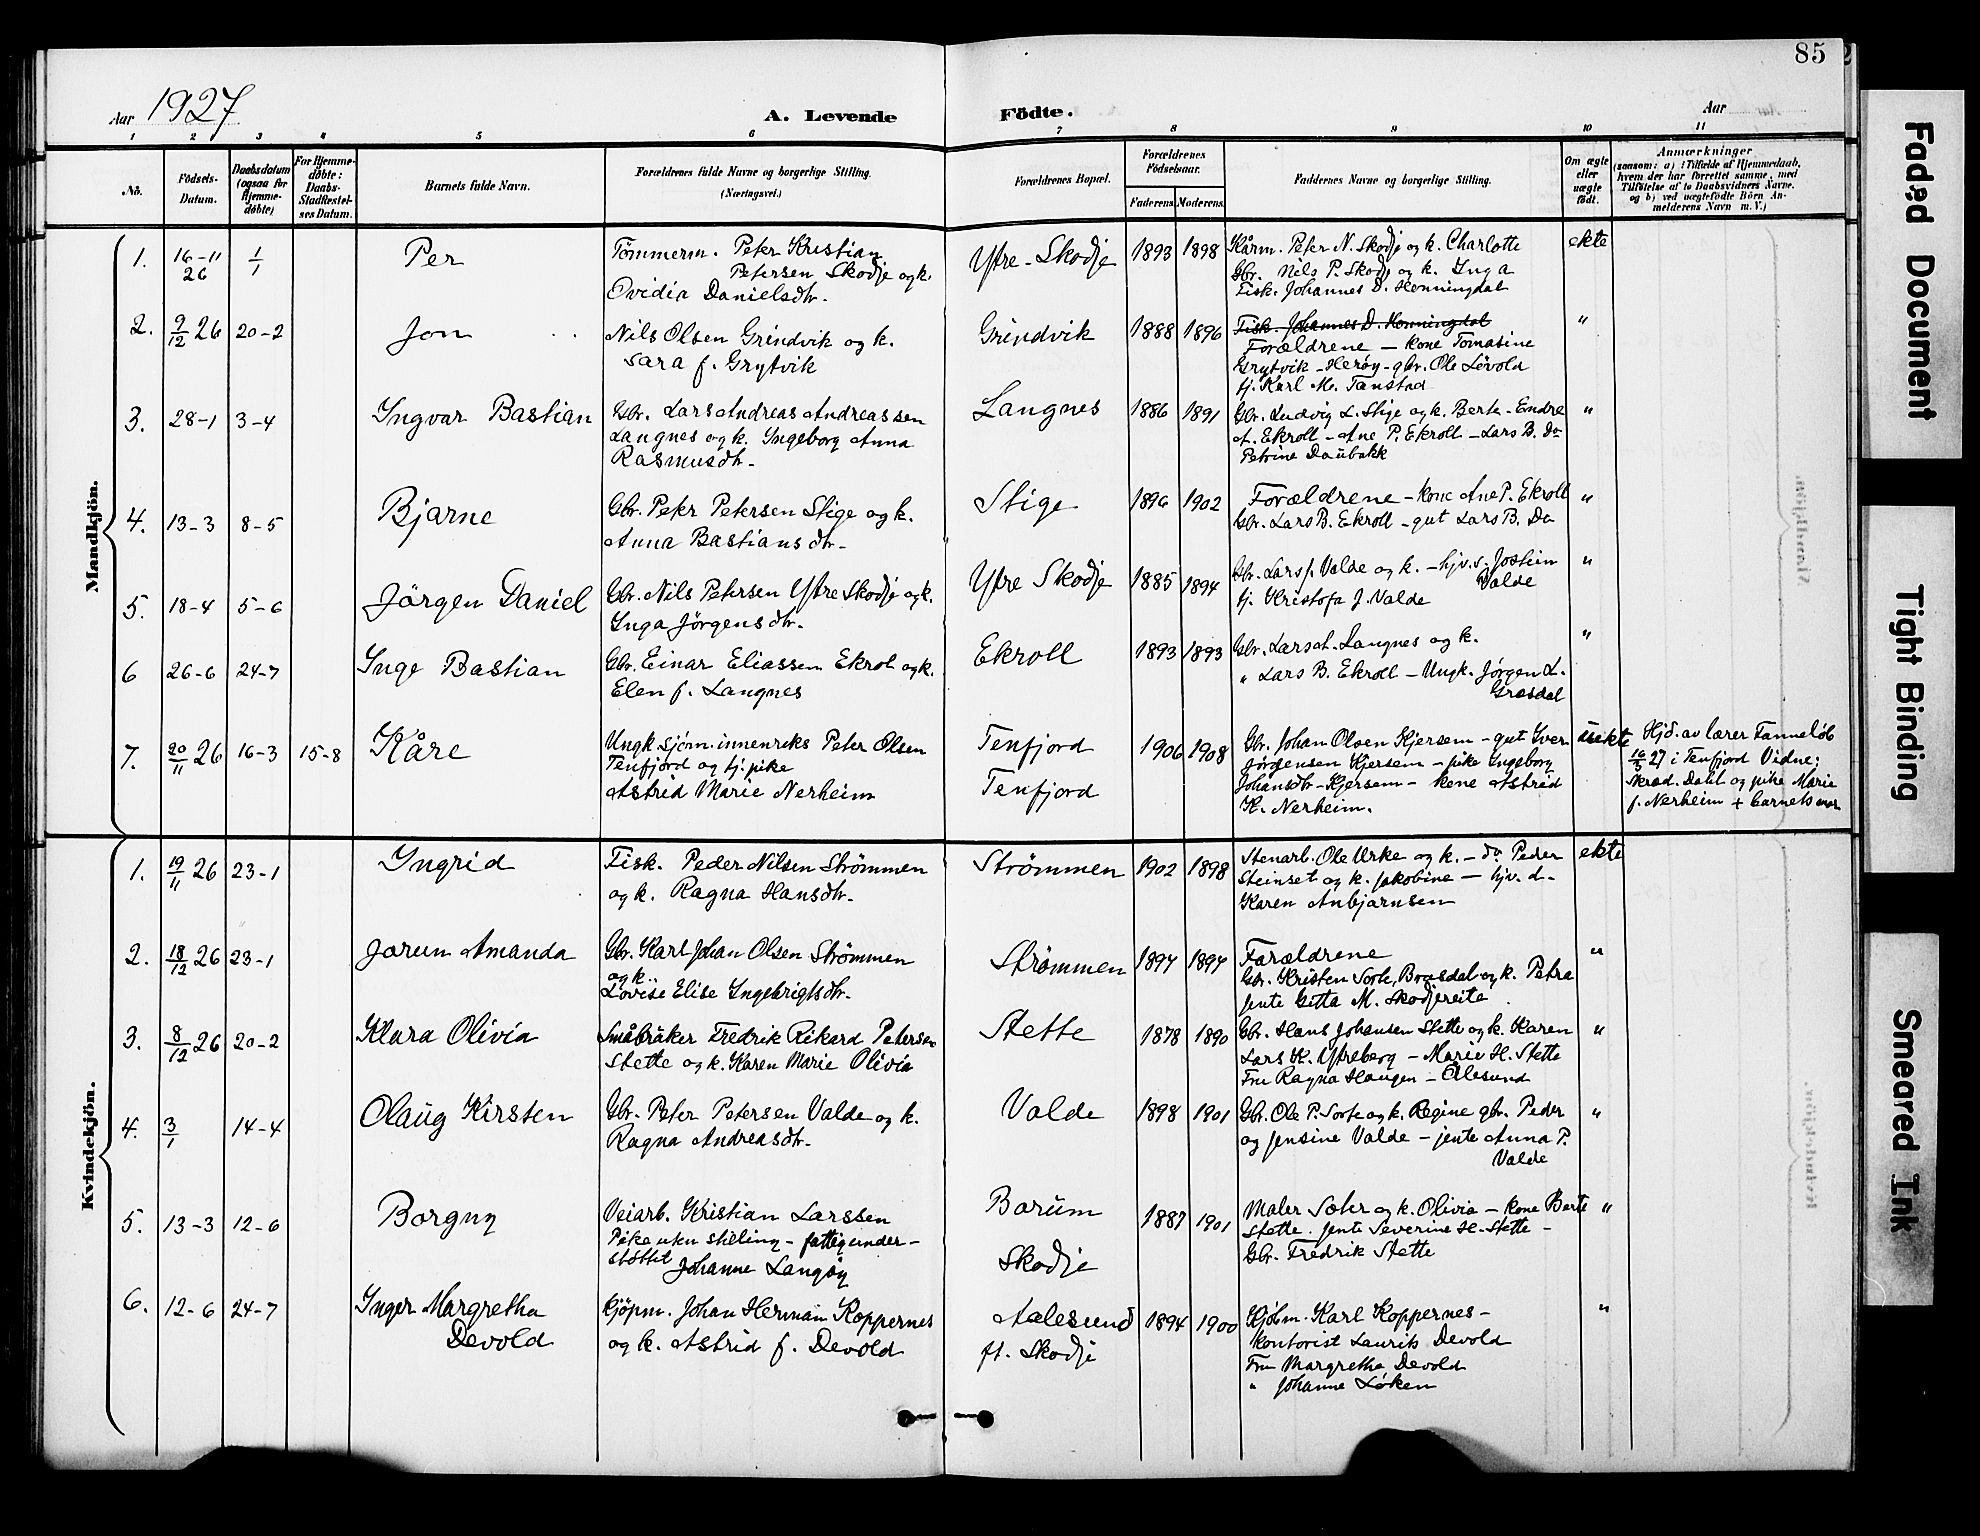 85
Aar 1927
A. Levende Födte.
Aar
1 2 3 4 5 6 7 8 9 10 11
No.
Födsels-
Datum.
Daabsdatum
(ogsaa for
Hjemme-
døbte)
For Hjemme-
døbte:
Daabs-
Stadfæstel-
ses Datum.
Barnets fulde Navn.
Forældrenes fulde Navne og borgerlige Stilling.
(Næringsvei.)
Forældrenes Bopæl.
Forældrenes
Födselsaar.
Faderens Moderens
Faddernes Navne og borgerlige Stilling.
Om ægte
eller
uægte
født.
Anmærkninger
(saasom: a) i Tilfælde af Hjemmedaab,
hvem der har forrettet samme, med
Tilføielse af to Daabsvidners Navne,
og b) ved uægtefødte Börn An-
melderens Navn m. V.)
Mandkjön.
1. 16-11 26 1/1 Per
Tömmerm. Peter Kristian
Petersen Skodje og k.
Ovidia Danielsdtr.
Ytre-Skodje 1893 1898
Kårm. Peter N. Skodje og k. Charlotte
Gbr. Nils P. Skodje og k. Inga
Fisk. Johannes D. Honningdal
ekte
2. 9/12 26 20-2 Jon
Nils Olsen Grindvik og k.
Sara f. Grytvik
Grindvik 1888 1896
Fisk. Johannes D. Honningdal
Forældrene - kone Tomasine
Grytvik - Herøy - gbr. Ole Lövold
tj. Karl M. Tanstad
"
3. 28-1 3-4 Ingvar Bastian
Gbr. Lars Andreas Andreassen
Langnes og k. Ingeborg Anna
Rasmusdtr.
Langnes 1886 1891
Gbr. Ludvig L. Stige og k. Berte - Endre
A. Ekroll - Ane P. Ekroll - Lars B. Do
Petrine Daubakk
"
4. 13-3 8-5 Bjarne
Gbr. Peter Petersen Stige og k.
Anna Bastiansdtr.
Stige 1896 1902
Forældrene - kone Ane P. Ekroll
Gbr. Lars B. Ekroll - gut Lars B. Do
"
5. 18-4 5-6 Jörgen Daniel
Gbr. Nils Petersen Ytre Skodje og k.
Inga Jörgensdtr.
Ytre Skodje 1885 1894
Gbr. Lars J. Valde og k. - hjv. s. Jostein
Valde
tj. Kristofa J. Valde
"
6 26-6 24-7 Inge Bastian
Gbr. Einar Eliassen Ekrol og k.
Elen f. Langnes
Ekroll 1893 1893
Gbr. Lars A. Langnes og k.
" Lars B. Ekroll - Ungk. Jörgen L.
Grasdal
"
7. 20/11 26 16-3 15-8 Kåre
Ungk. sjöm. innenriks Peter Olsen
Tenfjord og tj. pike
Astrid Marie Nerheim
Tenfjord
Tenfjord
1906 1908
Gbr. Johan Olsen Kjersem - gut Iver
Jörgensen Kjersem - pike Ingeborg
Johansdtr. Kjersem - kone Astrid
K. Nerheim.
uekte
Hjd. av lærer Tanneløb
16/3 27 i Tenfjord Vidne:
Skræd. Dahl og pike Marie
f. Nerheim + barnets mor
Kvindekjön.
1. 19/11 26 23-1 Ingrid
Fisk. Peder Nilsen Strömmen
og k. Ragna Hansdtr.
Strömmen 1902 1898
Stenarb. Ole Urke og k. - do Peder
Steinset og k. Jakobine - hjv. d.
Karen Anbjørnsen
ekte
2. 18/12 26 23-1 Jorun Amanda
Gbr. Karl Johan Olsen Strömmen
og k.
Lovise Elise Ingebrigtsdtr.
Strömmen 1894 1894
Forældrene
Gbr. Kristen Sorte, Brusdal og k. Petra
jente Gitta M. Skodjereite
"
3. 8/12 26 20-2 Klara Olivia
Småbruker Fredrik Rikard Petersen
Stette og k. Karen Marie Olivia
Stette 1878 1890
Gbr. Hans Johansen Stette og k. Karen
Lars K. Ytreberg - Marie H. Stette
Fru Ragna Haugen - Ålesund
"
4. 3/1 14-4 Olaug Kirsten
Gbr. Peter Petersen Valde og k.
Ragna Andreasdtr.
Valde 1898 1901
Gbr. Ole P. Sorte og k. Regine gbr. Peder
og Jensine Valde - jente Anna P.
Valde
"
5. 13-3 12-6 Borgny
Veiarb. Kristian Larssen
Pike uten stilling - fattigunder-
støttet Johanne Langöy
Bærum
Skodje
1887 1901
Maler Sæter og k. Olivia - kone Berte
Stette. jente Severine H. Stette -
Gbr. Fredrik Stette
"
6. 12-6 24-7 Inger Margretha
Devold
Kjöpm. Johan Herman Koppernes
og k. Astrid f. Devold
Aalesund
ft. Skodje
1894 1900
Kjöbm. Karl Koppernes -
Kontorist Laurits Devold
Fru Margretha Devold
" Johanne Löken
"
Faded Document
Tight Binding
Smeared Ink